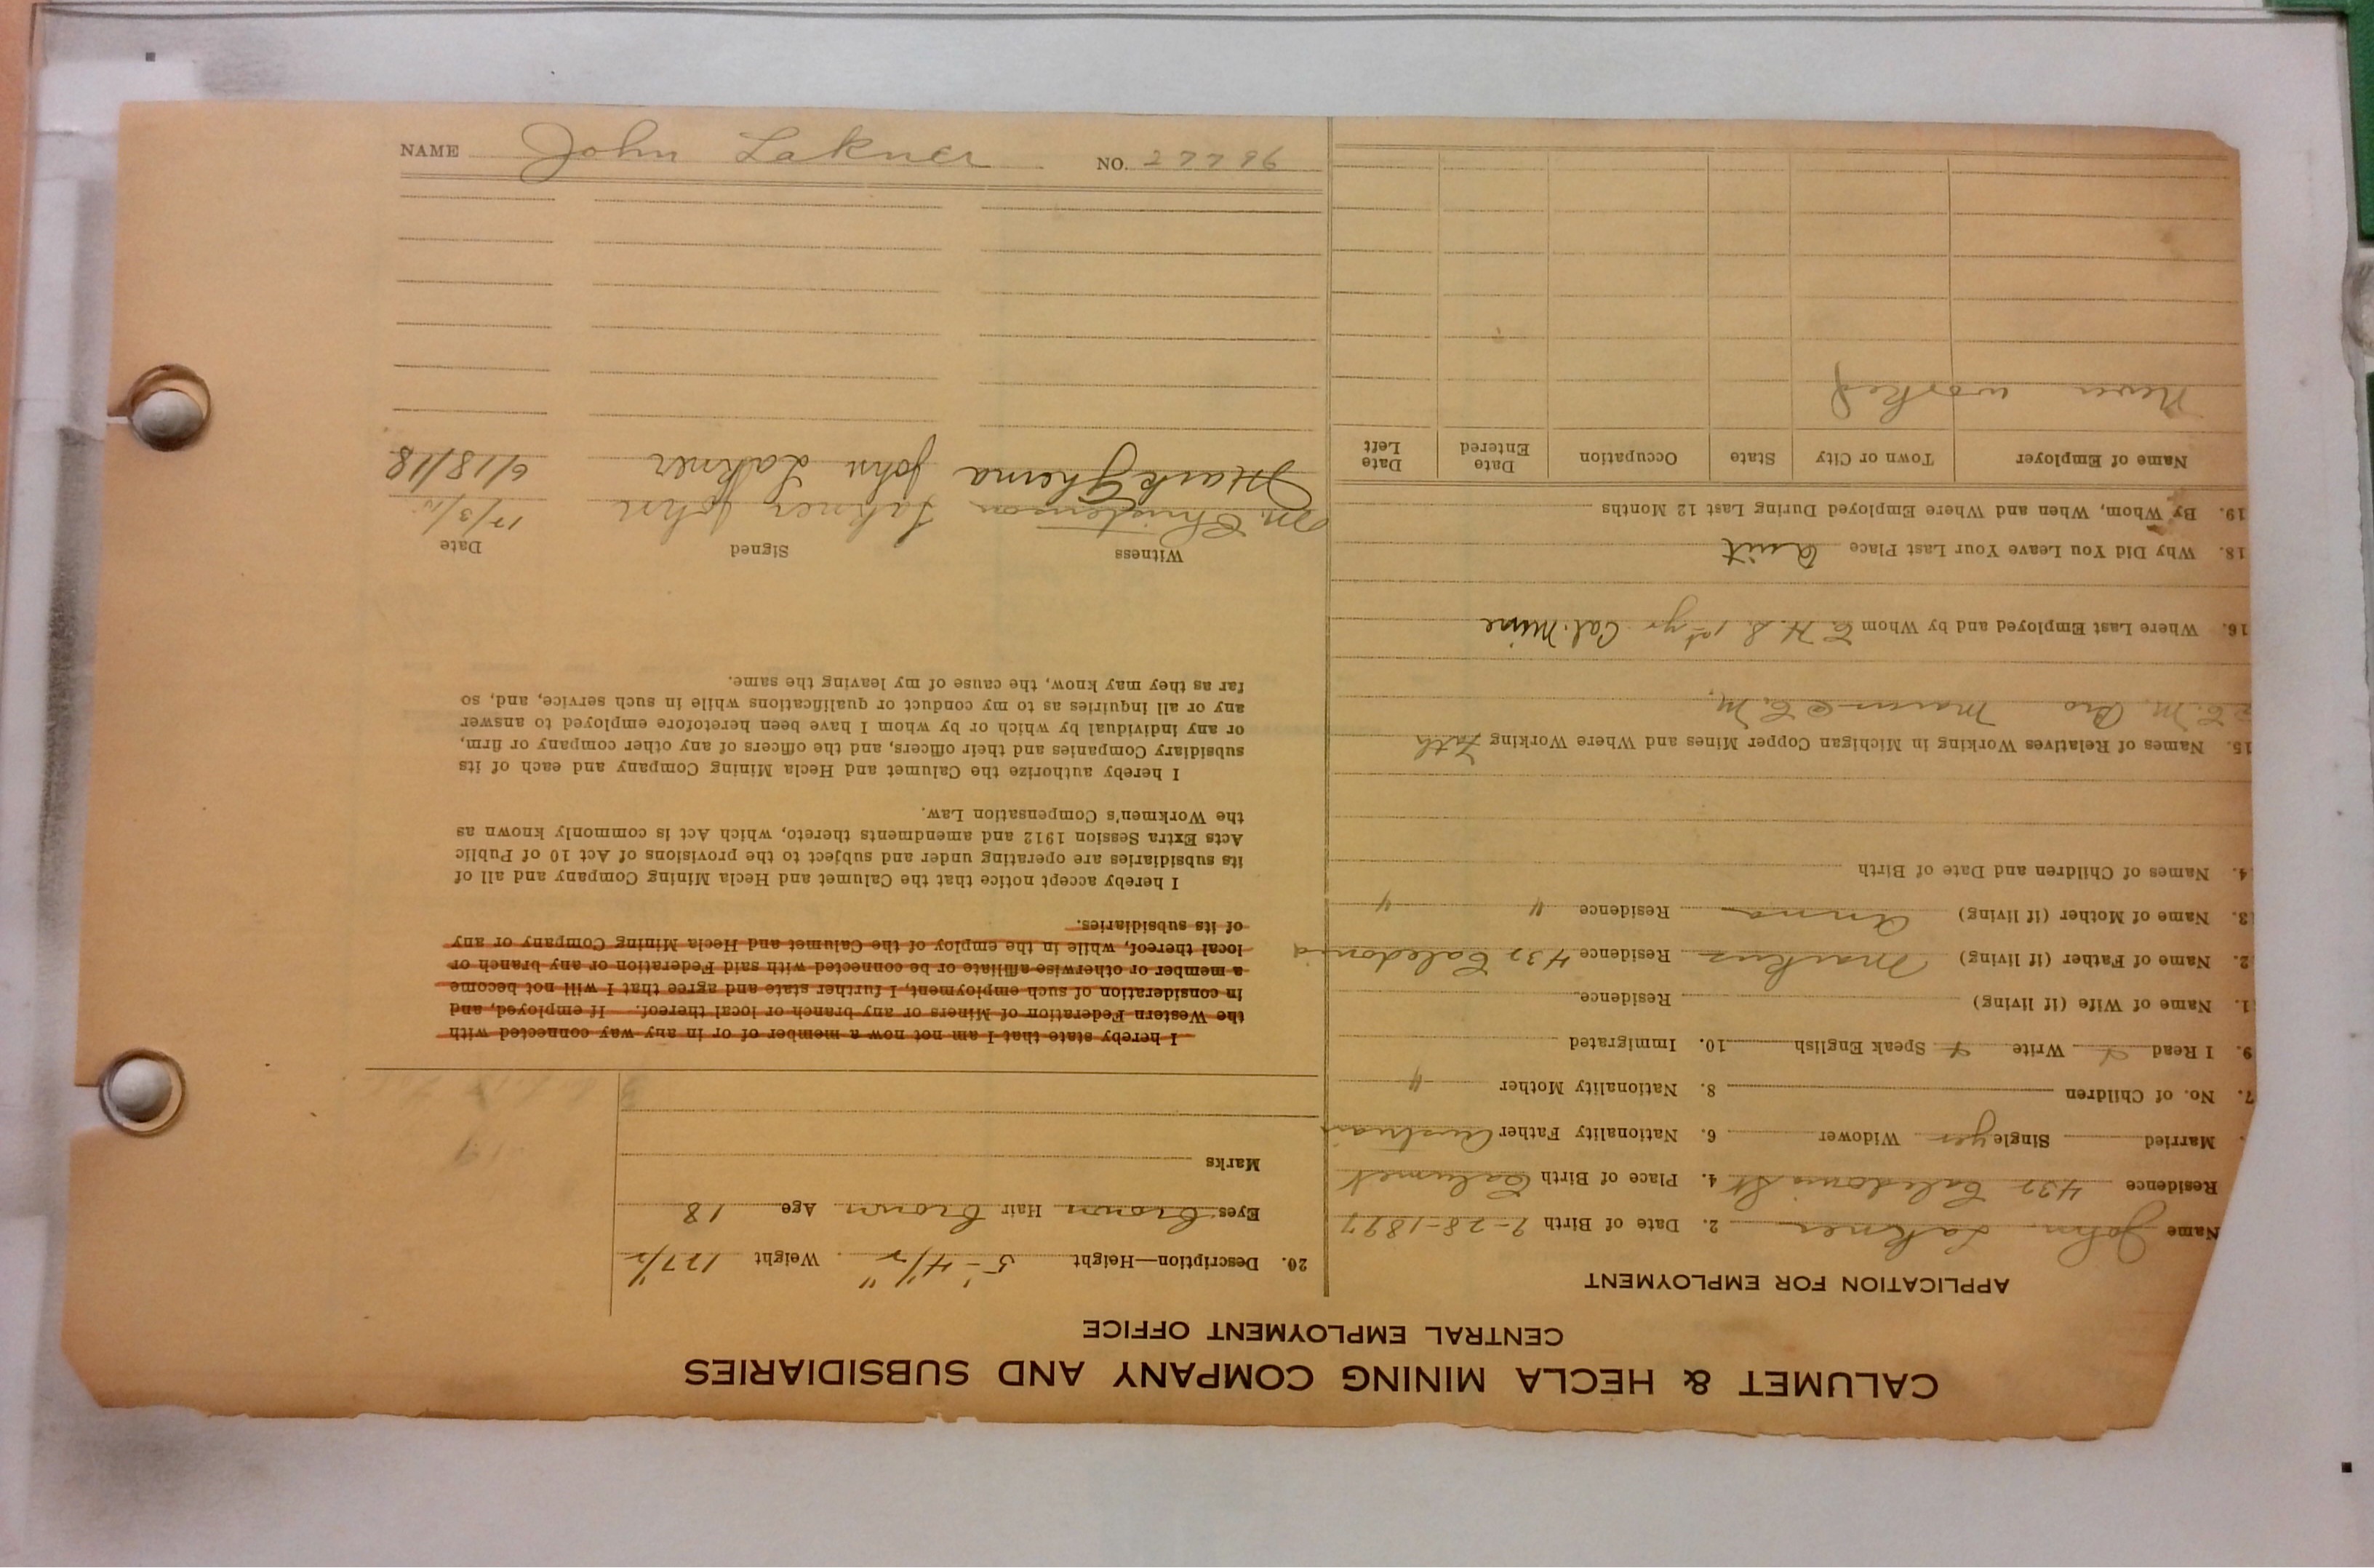 CALUMET & HECLA MINING COMPANY AND SUBSIDIARIES
CENTRAL EMPLOYMENT OFFICE
APPLICATION FOR EMPLOYMENT
Name John Lakner 2. Date of Birth 9-28-1897
Residence 437 Caledonia St. 4. Place of Birth Calumet
Married Single yes Widower 6. Nationality Father Austrian
7. No. of Children 8. Nationality Mother "
9. I Read Write Speak English 10. Immigrated
1. Name of Wife (if living) Residence
2. Name of Father (if living) Markus Residence 437 Caledonia
3. Name of Mother (if living) Anna Residence " "
4. Names of Children and Date of Birth
15. Names of Relatives Working in Michigan Copper Mines and Where Working Fath
C. M. Bro C. M.
16. Where Last Employed and by Whom C. H. S. 1st yr Cal. Mine
18. Why Did You Leave Your Last Place Quit
19. By Whom, When and Where Employed During Last 12 Months
Name of Employer Town or City State Occupation Date Entered Date Left
Never worked
20. Description—Height 5'-4 1/2" Weight 127 1/2
Eyes Brown Hair Brown Age 18
Marks
I hereby state that I am not now a member of or in any way connected with
the Western Federation of Miners or any branch or local thereof. If employed, and
in consideration of such employment, I further state and agree that I will not become
a member or otherwise affiliate or be connected with said Federation or any branch or
local thereof, while in the employ of the Calumet and Hecla Mining Company or any
of its subsidiaries.
I hereby accept notice that the Calumet and Hecla Mining Company and all of
its subsidiaries are operating under and subject to the provisions of Act 10 of Public
Acts Extra Session 1912 and amendments thereto, which Act is commonly known as
the Workmen's Compensation Law.
I hereby authorize the Calumet and Hecla Mining Company and each of its
subsidiary Companies and their officers, and the officers of any other company or firm,
or any individual by which or by whom I have been heretofore employed to answer
any or all inquiries as to my conduct or qualifications while in such service, and, so
far as they may know, the cause of my leaving the same.
Witness Signed Date
M. Christenson Lakner John
Mark Gherna John Lakner 6/18/18
NAME John Lakner NO. 27796